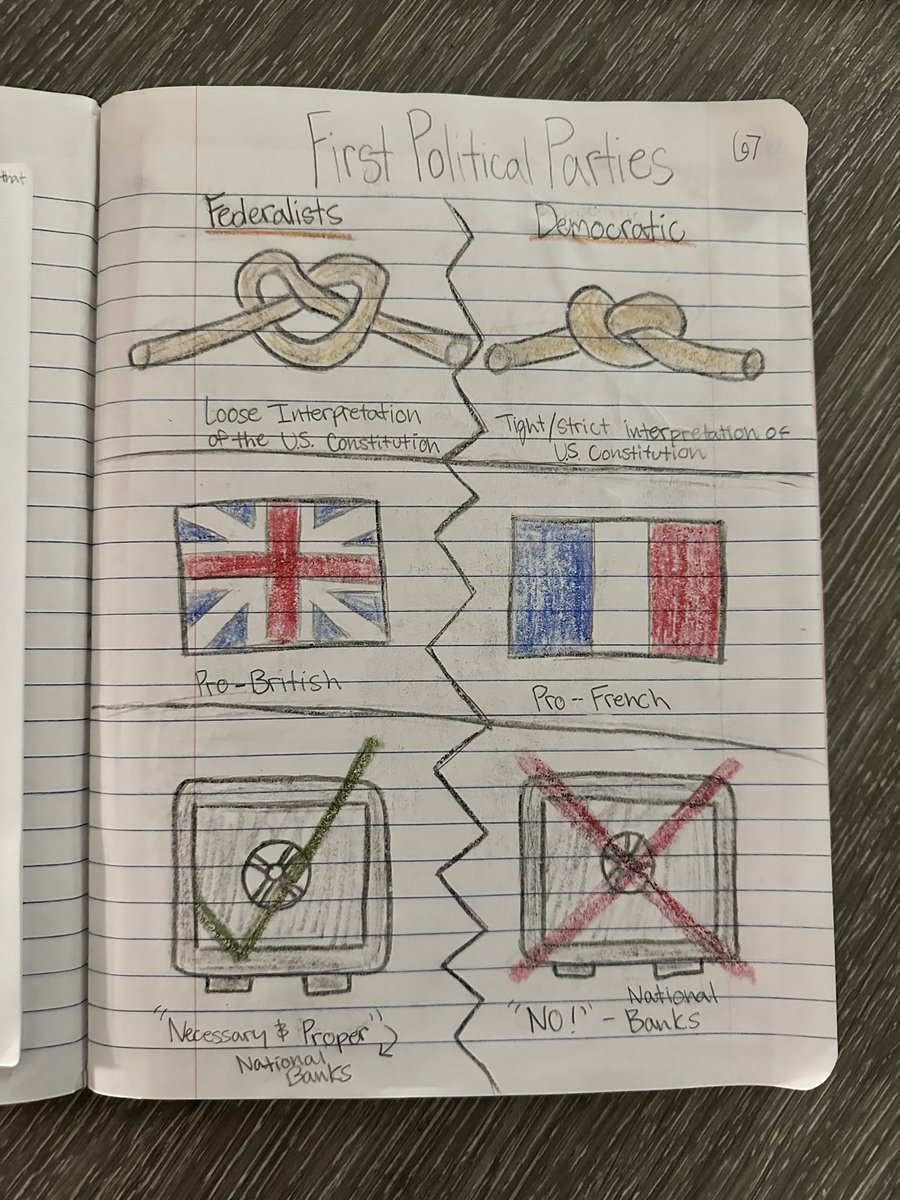 that
First Political Parties
67
Federalists
Democratic
Loose Interpretation
of the U.S. Constitution
Tight/Strict interpretation of
U.S. Constitution
Pro-British
Pro-French
"Necessary & Proper"
National
Banks
"NO!" - National
Banks